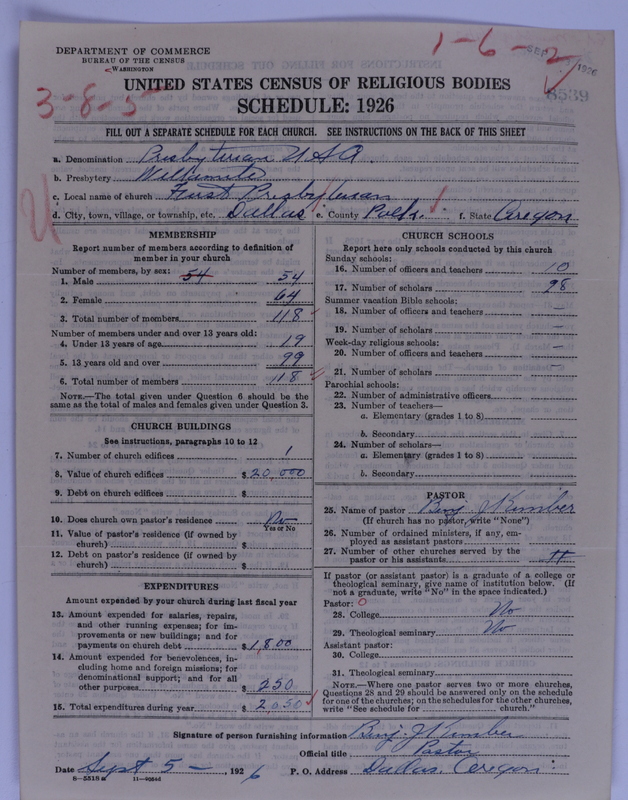 DEPARTMENT OF COMMERCE
BUREAU OF THE CENSUS
WASHINGTON
1-6-2
1926
8539
3-8-5
UNITED STATES CENSUS OF RELIGIOUS BODIES
SCHEDULE: 1926
FILL OUT A SEPARATE SCHEDULE FOR EACH CHURCH. SEE INSTRUCTIONS ON THE BACK OF THIS SHEET
a. Denomination Presbyterian U S A.
b. Presbytery Willamette
c. Local name of church First Presbyterian
d. City, town, village, or township, etc. Dallas e. County Polk f. State Oregon
MEMBERSHIP
Report number of members according to definition of
member in your church
Number of members, by sex: 54
1. Male 54
2. Female 64
3. Total number of members 118
Number of members under and over 13 years old:
4. Under 13 years of age 19
5. 13 years old and over 99
6. Total number of members 118
NOTE.—The total given under Question 6 should be the
same as the total of males and females given under Question 3.
CHURCH BUILDINGS
See instructions, paragraphs 10 to 12
7. Number of church edifices 1
8. Value of church edifices $ 20,000
9. Debt on church edifices $
10. Does church own pastor's residence No
Yes or No
11. Value of pastor's residence (if owned by
church) $
12. Debt on pastor's residence (if owned by
church) $
EXPENDITURES
Amount expended by your church during last fiscal year
13. Amount expended for salaries, repairs,
and other running expenses; for im-
provements or new buildings; and for
payments on church debt $ 1,800
14. Amount expended for benevolences, in-
cluding home and foreign missions; for
denominational support; and for all
other purposes $ 250
15. Total expenditures during year $ 2050
CHURCH SCHOOLS
Report here only schools conducted by this church
Sunday schools:
16. Number of officers and teachers 10
17. Number of scholars 98
Summer vacation Bible schools:
18. Number of officers and teachers —
19. Number of scholars —
Week-day religious schools:
20. Number of officers and teachers —
21. Number of scholars —
Parochial schools:
22. Number of administrative officers
23. Number of teachers—
a. Elementary (grades 1 to 8)
b. Secondary
24. Number of scholars—
a. Elementary (grades 1 to 8)
b. Secondary
PASTOR
25. Name of pastor Benj. J Kimber
(If church has no pastor, write "None")
26. Number of ordained ministers, if any, em-
ployed as assistant pastors
27. Number of other churches served by the
pastor or his assistants
If pastor (or assistant pastor) is a graduate of a college or
theological seminary, give name of institution below. (If
not a graduate, write "No" in the space indicated.)
Pastor:
28. College No
29. Theological seminary No
Assistant pastor:
30. College
31. Theological seminary
NOTE.—Where one pastor serves two or more churches,
Questions 28 and 29 should be answered only on the schedule
for one of the churches; on the schedules for the other churches,
write "See schedule for church."
Signature of person furnishing information Benj. J Kimber
Official title Pastor
Date Sept 5 —, 1926 P. O. Address Dallas, Oregon
8-5518a